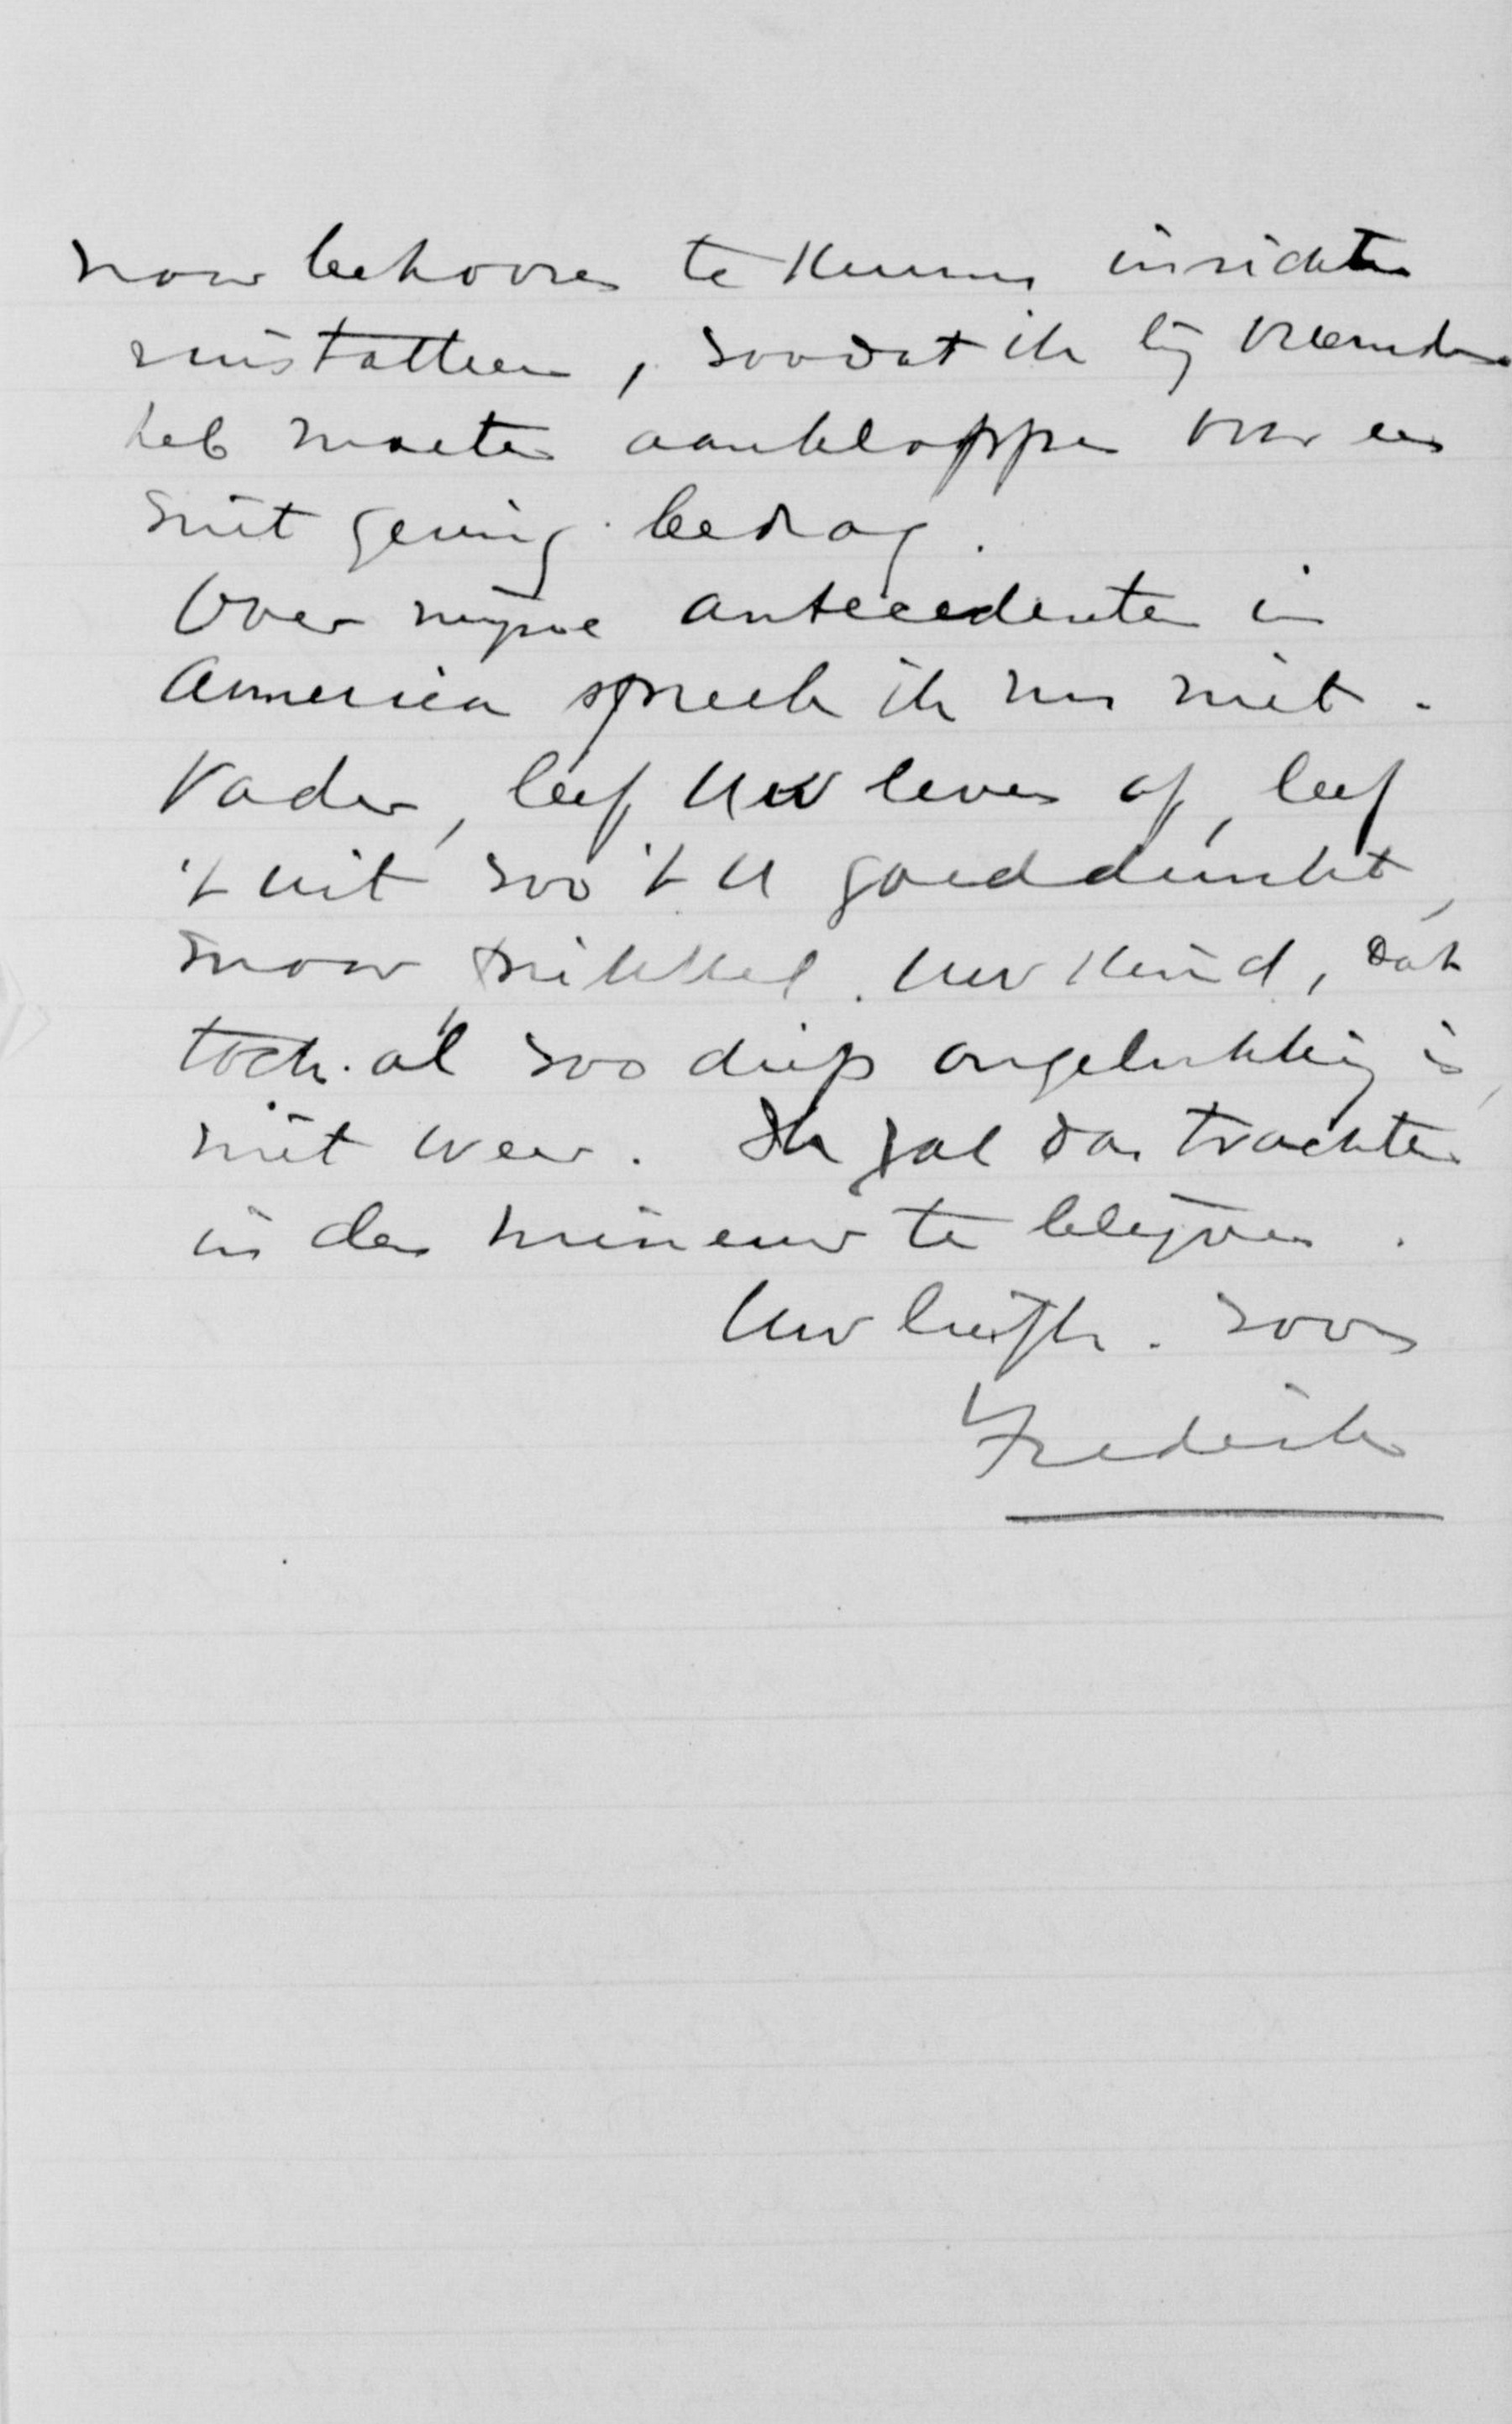 naar behooren te kunnen inrichten
installeeren, zoodat ik bij vreemden
heb moeten aankloppen voor een
niet gering bedrag.
Over mijne antecedenten in
America spreek ik nu niet.
Vader, leef Uw leven af, leef
't uit zoo 't U goeddunkt,
maar prikkel Uw kind, dat
toch al zoo diep ongelukkig is,
niet weer. Ik zal dan trachten
in den mineur te blijven.
Uw liefh. zoon
Frederik